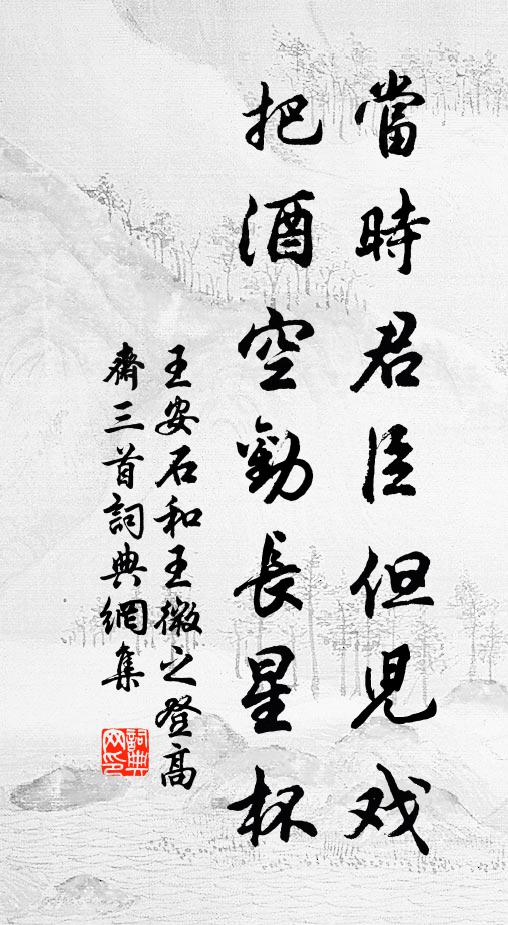 當時君臣但児戏
把酒空勸長星杯
王安石和王微之登高
齋三首詞典網集
詞典
网印